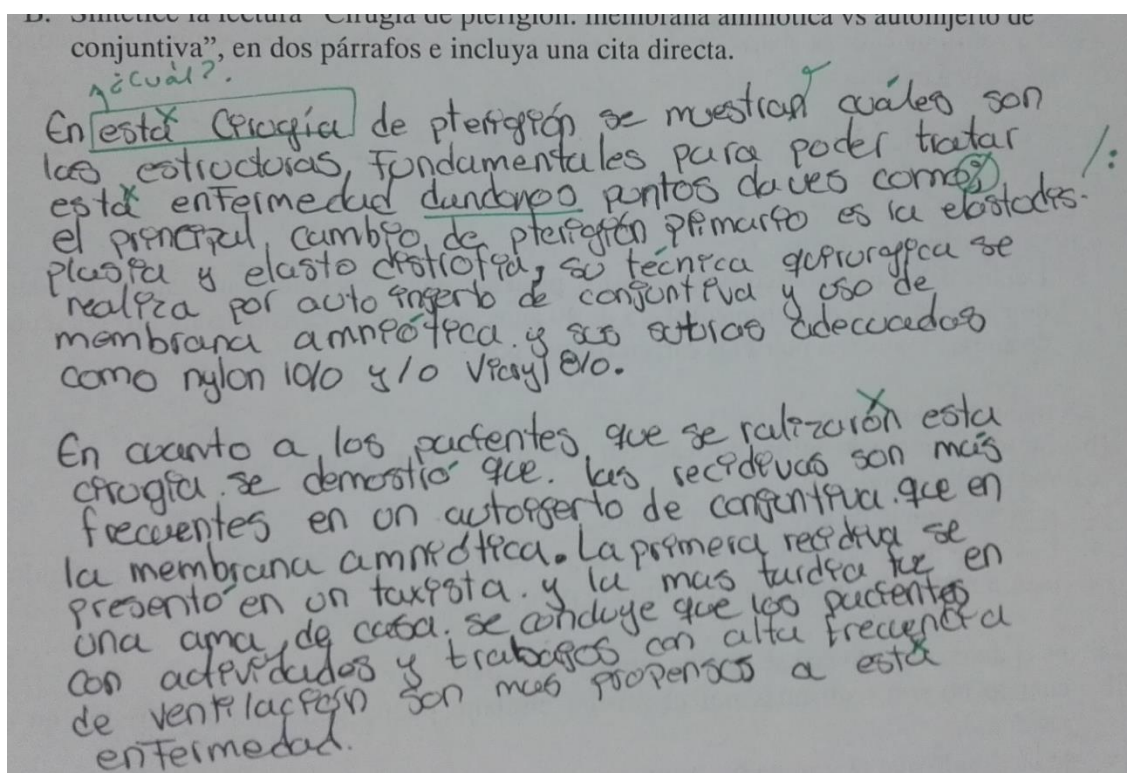 B. Sintetice la lectura "Cirugía de pterigión: membrana amniótica vs autoinjerto de
conjuntiva", en dos párrafos e incluya una cita directa.
¿Cuál?.
En está Cirugía de pterigión se muestran cuáles son
las estructuras, fundamentales para poder tratar
está enfermedad dandonos puntos claves como: /:
el principal, cambio, de pterigión primario es la elastodis-
plasia y elasto distrofia, su técnica quirurgica se
realiza por auto ingerto de conjuntiva y uso de
membrana amniótica. y sus suturas adecuadas
como nylon 10/0 y/o Vicryl 8/0.
En cuanto a, los pacientes, que se ralizarón esta
cirugía. se demostró que. las recidivas son más
frecuentes en un autoigerto de conjuntiva. que en
la membrana amniótica. La primera recidiva se
presentó en un taxista. y la mas tardia fue en
una ama, de casa. se concluye que los pacientes
con actividades y trabagos con alta frecuencia
de ventilación son mas propensos a está
enfermedad.